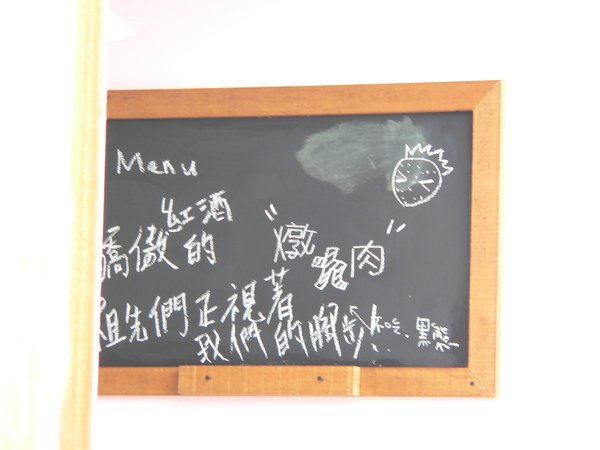 Menu
紅酒
驕傲的
"燉 肉"
祖先們正視著
我們的腳步
不吃、黑熊